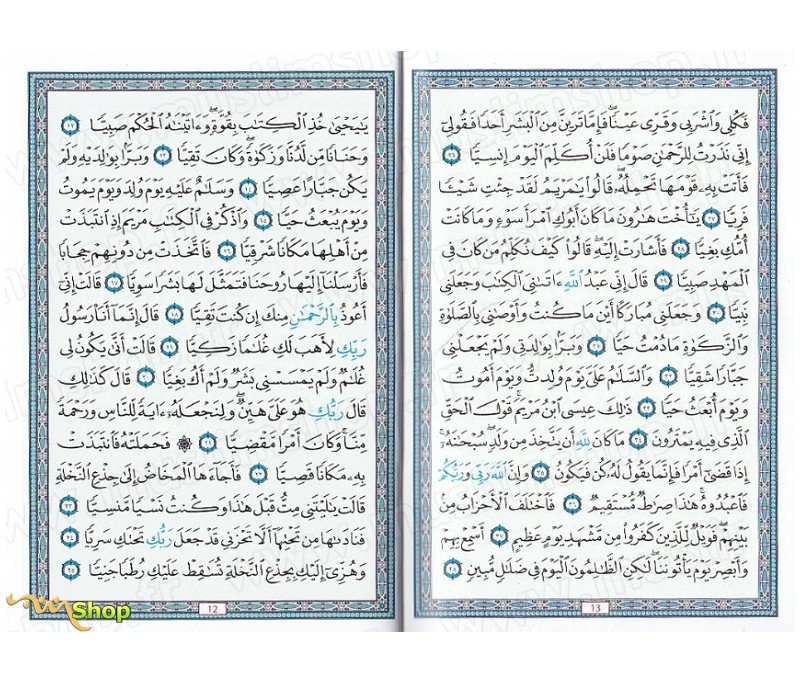 يَـٰيَحْيَىٰ خُذِ ٱلْكِتَـٰبَ بِقُوَّةٍ ۖ وَءَاتَيْنَـٰهُ ٱلْحُكْمَ صَبِيًّا ١٢
وَحَنَانًا مِّن لَّدُنَّا وَزَكَوٰةً ۖ وَكَانَ تَقِيًّا ١٣ وَبَرًّۢا بِوَٰلِدَيْهِ وَلَمْ
يَكُن جَبَّارًا عَصِيًّا ١٤ وَسَلَـٰمٌ عَلَيْهِ يَوْمَ وُلِدَ وَيَوْمَ يَمُوتُ
وَيَوْمَ يُبْعَثُ حَيًّا ١٥ وَٱذْكُرْ فِى ٱلْكِتَـٰبِ مَرْيَمَ إِذِ ٱنتَبَذَتْ
مِنْ أَهْلِهَا مَكَانًا شَرْقِيًّا ١٦ فَٱتَّخَذَتْ مِن دُونِهِمْ حِجَابًا
فَأَرْسَلْنَآ إِلَيْهَا رُوحَنَا فَتَمَثَّلَ لَهَا بَشَرًا سَوِيًّا ١٧ قَالَتْ إِنِّىٓ
أَعُوذُ بِٱلرَّحْمَـٰنِ مِنكَ إِن كُنتَ تَقِيًّا ١٨ قَالَ إِنَّمَآ أَنَا۠ رَسُولُ
رَبِّكِ لِأَهَبَ لَكِ غُلَـٰمًا زَكِيًّا ١٩ قَالَتْ أَنَّىٰ يَكُونُ لِى
غُلَـٰمٌ وَلَمْ يَمْسَسْنِى بَشَرٌ وَلَمْ أَكُ بَغِيًّا ٢٠ قَالَ كَذَٰلِكِ
قَالَ رَبُّكِ هُوَ عَلَىَّ هَيِّنٌ ۖ وَلِنَجْعَلَهُۥٓ ءَايَةً لِّلنَّاسِ وَرَحْمَةً
مِّنَّا ۚ وَكَانَ أَمْرًا مَّقْضِيًّا ٢١ ۞ فَحَمَلَتْهُ فَٱنتَبَذَتْ
بِهِۦ مَكَانًا قَصِيًّا ٢٢ فَأَجَآءَهَا ٱلْمَخَاضُ إِلَىٰ جِذْعِ ٱلنَّخْلَةِ
قَالَتْ يَـٰلَيْتَنِى مِتُّ قَبْلَ هَـٰذَا وَكُنتُ نَسْيًا مَّنسِيًّا ٢٣
فَنَادَىٰهَا مِن تَحْتِهَآ أَلَّا تَحْزَنِى قَدْ جَعَلَ رَبُّكِ تَحْتَكِ سَرِيًّا ٢٤
وَهُزِّىٓ إِلَيْكِ بِجِذْعِ ٱلنَّخْلَةِ تُسَـٰقِطْ عَلَيْكِ رُطَبًا جَنِيًّا ٢٥
12
فَكُلِى وَٱشْرَبِى وَقَرِّى عَيْنًا ۖ فَإِمَّا تَرَيِنَّ مِنَ ٱلْبَشَرِ أَحَدًا فَقُولِىٓ
إِنِّى نَذَرْتُ لِلرَّحْمَـٰنِ صَوْمًا فَلَنْ أُكَلِّمَ ٱلْيَوْمَ إِنسِيًّا ٢٦
فَأَتَتْ بِهِۦ قَوْمَهَا تَحْمِلُهُۥ ۖ قَالُوا۟ يَـٰمَرْيَمُ لَقَدْ جِئْتِ شَيْـًٔا
فَرِيًّا ٢٧ يَـٰٓأُخْتَ هَـٰرُونَ مَا كَانَ أَبُوكِ ٱمْرَأَ سَوْءٍ وَمَا كَانَتْ
أُمُّكِ بَغِيًّا ٢٨ فَأَشَارَتْ إِلَيْهِ ۖ قَالُوا۟ كَيْفَ نُكَلِّمُ مَن كَانَ فِى
ٱلْمَهْدِ صَبِيًّا ٢٩ قَالَ إِنِّى عَبْدُ ٱللَّهِ ءَاتَىٰنِىَ ٱلْكِتَـٰبَ وَجَعَلَنِى
نَبِيًّا ٣٠ وَجَعَلَنِى مُبَارَكًا أَيْنَ مَا كُنتُ وَأَوْصَـٰنِى بِٱلصَّلَوٰةِ
وَٱلزَّكَوٰةِ مَا دُمْتُ حَيًّا ٣١ وَبَرًّۢا بِوَٰلِدَتِى وَلَمْ يَجْعَلْنِى
جَبَّارًا شَقِيًّا ٣٢ وَٱلسَّلَـٰمُ عَلَىَّ يَوْمَ وُلِدتُّ وَيَوْمَ أَمُوتُ
وَيَوْمَ أُبْعَثُ حَيًّا ٣٣ ذَٰلِكَ عِيسَى ٱبْنُ مَرْيَمَ ۚ قَوْلَ ٱلْحَقِّ
ٱلَّذِى فِيهِ يَمْتَرُونَ ٣٤ مَا كَانَ لِلَّهِ أَن يَتَّخِذَ مِن وَلَدٍ ۖ سُبْحَـٰنَهُۥٓ ۚ
إِذَا قَضَىٰٓ أَمْرًا فَإِنَّمَا يَقُولُ لَهُۥ كُن فَيَكُونُ ٣٥ وَإِنَّ ٱللَّهَ رَبِّى وَرَبُّكُمْ
فَٱعْبُدُوهُ ۚ هَـٰذَا صِرَٰطٌ مُّسْتَقِيمٌ ٣٦ فَٱخْتَلَفَ ٱلْأَحْزَابُ مِنۢ
بَيْنِهِمْ ۖ فَوَيْلٌ لِّلَّذِينَ كَفَرُوا۟ مِن مَّشْهَدِ يَوْمٍ عَظِيمٍ ٣٧ أَسْمِعْ بِهِمْ
وَأَبْصِرْ يَوْمَ يَأْتُونَنَا ۖ لَـٰكِنِ ٱلظَّـٰلِمُونَ ٱلْيَوْمَ فِى ضَلَـٰلٍ مُّبِينٍ ٣٨
13
Shop